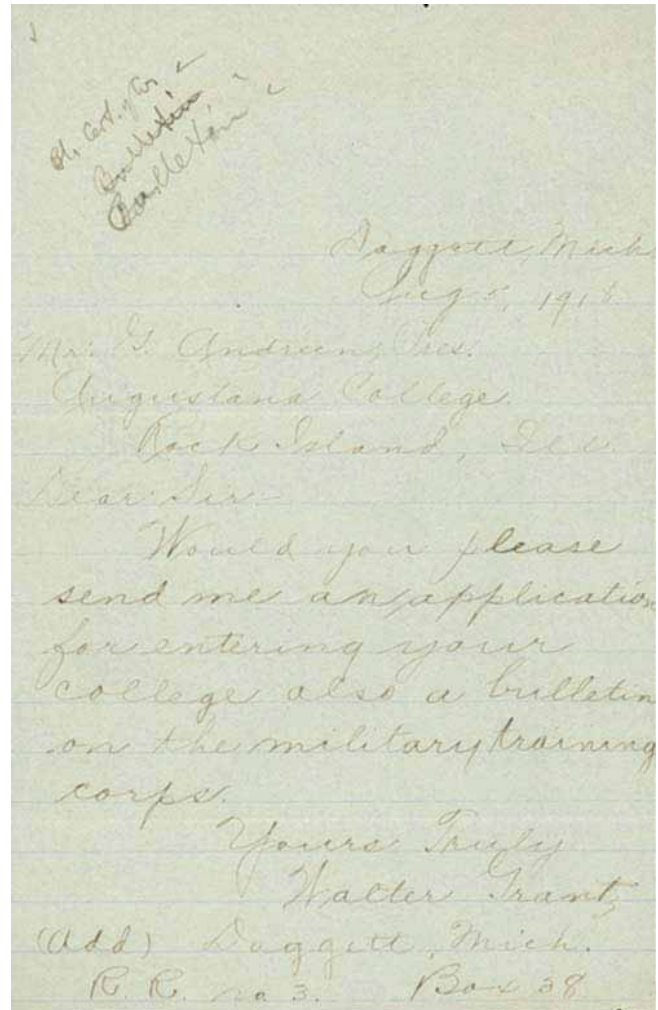 Bulletin
Bulletin
Daggett, Mich.
Aug 5, 1918.
Mr. G. Andreen, Pres.
Augustana College.
Rock Island, Ill.
Dear Sir:-
Would you please
send me an application
for entering your
college also a bulletin
on the military training
corps.
Yours Truly
Walter Grant,
(Add) Daggett, Mich.
R. R. no 3. Box 38